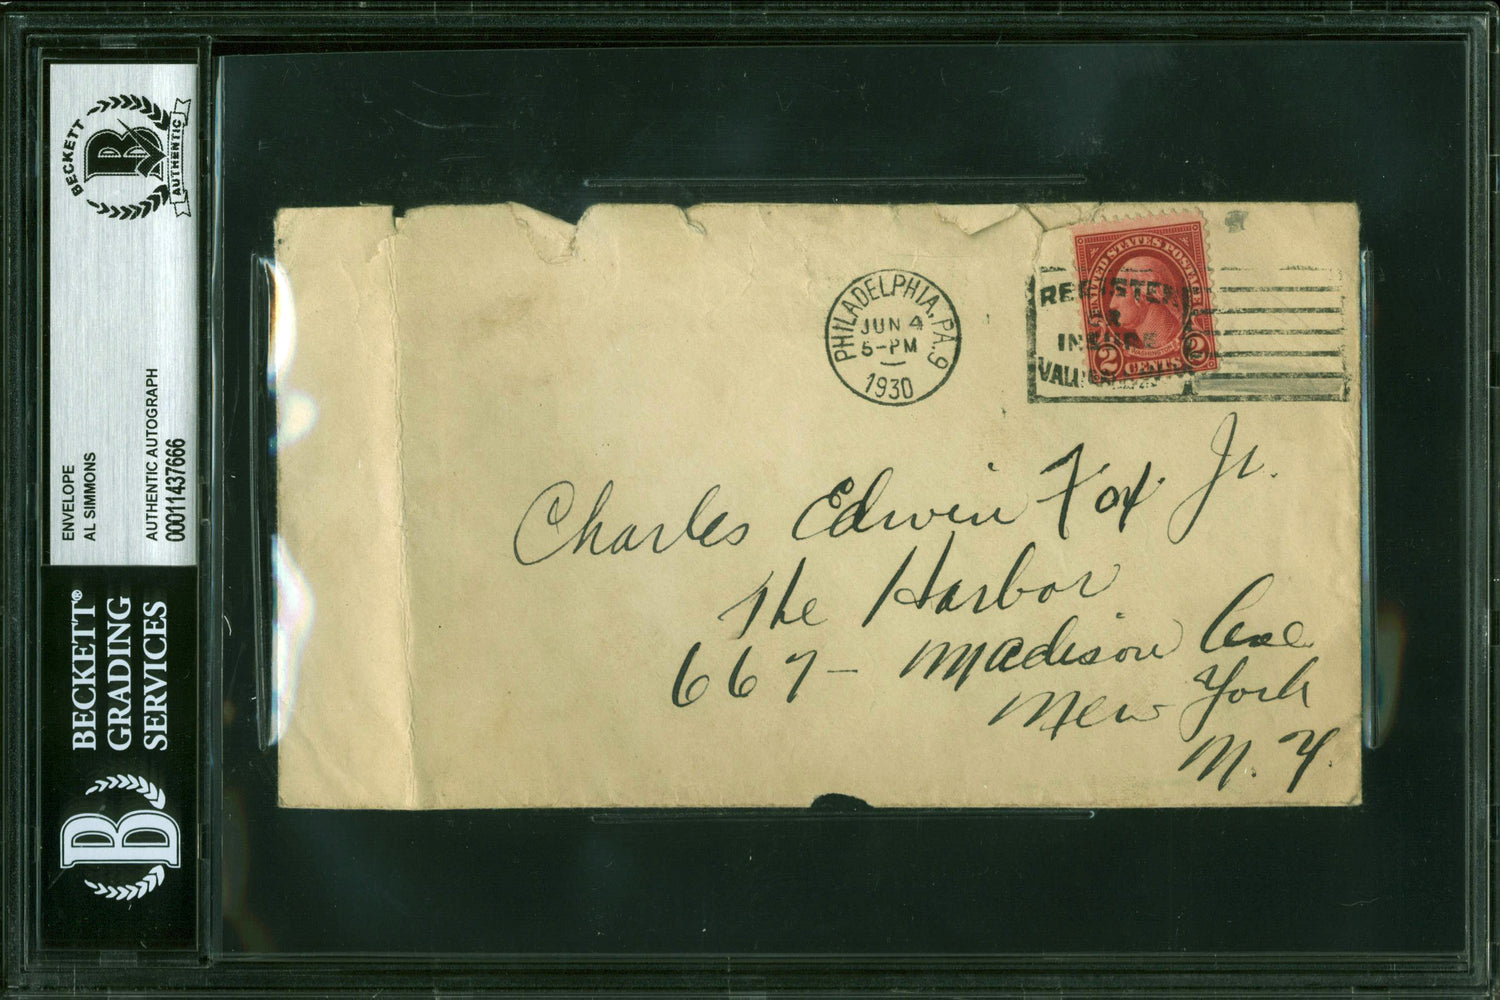 BECKETT
AUTHENTIC
ENVELOPE
AL SIMMONS
AUTHENTIC AUTOGRAPH
00011437666
BECKETT®
GRADING
SERVICES
PHILADELPHIA, PA. 9
JUN 4
5-PM
1930
REGISTER
OR
INSURE
UNITED STATES POSTAGE
WASHINGTON
2 CENTS 2
Charles Edwin Fox Jr.
The Harbor
667- Madison Ave
New York
N. Y.